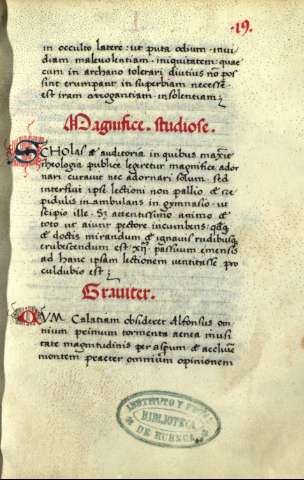 19.
in occulto latere: ut puta odium. inui
diam maleuolentiam. iniquitatem: quae
cum in archano tolerari diutius no pos
sint erumpant in superbiam necesse
est iram arrogantiam. insolentiam;
Magnifice. studiose.
SCHOLAS & auditoria in quibus maxie
theologia publice legeretur magnifice ador
nari curauit nec adornari solum. sed
interfui ipse lectioni non pallio & cre
pidulis inambulans in gymnasio. ut
scipio ille. Sz attentissimo animo &
toto ut aiunt pectore incumbens: qdq
& doctis mirandum & ignauis rudibusq
erubescendum est. XII. passuum emensis
ad hanc ipsam lectionem uentitasse pro
culdubio est;
Grauiter.
QVM Calatiam obsideret Alfonsus om
nium primum tormenta aenea musi
tatae magnitudinis per asperum & accliue
montem praeter omnium opinionem
INSTITUTO Y
BIBLIOTECA
DE HUESCA